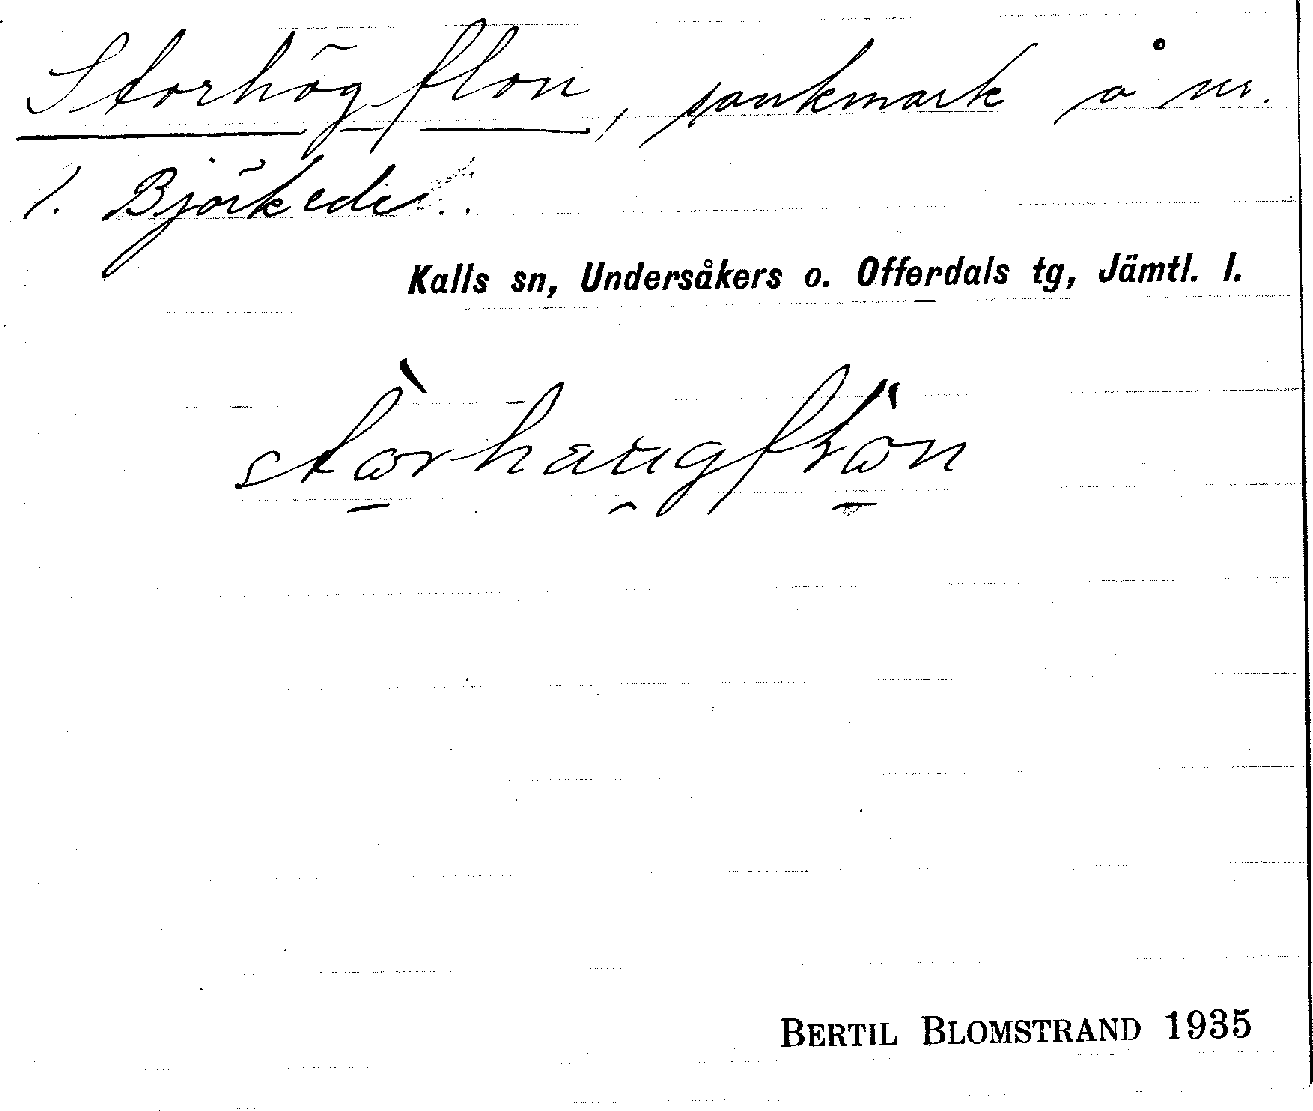 Storhögflon, sankmark å nr.
1. Björkede.
Kalls sn, Undersåkers o. Offerdals tg, Jämtl. l.
BERTIL BLOMSTRAND 1935